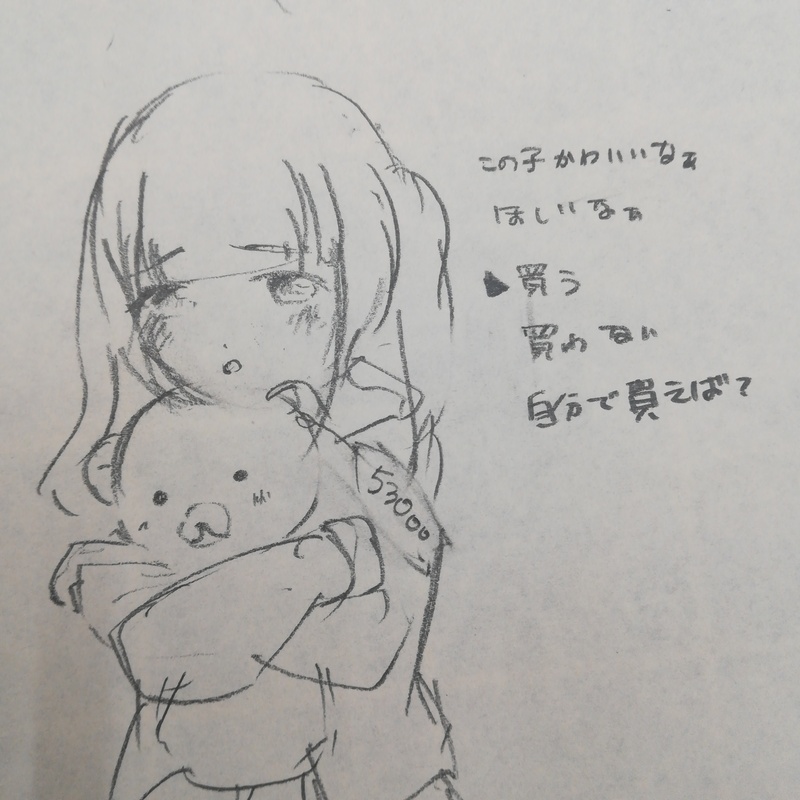 この子かわいいなぁ
ほしいなぁ
▶買う
買わない
自分で買えば?
53000